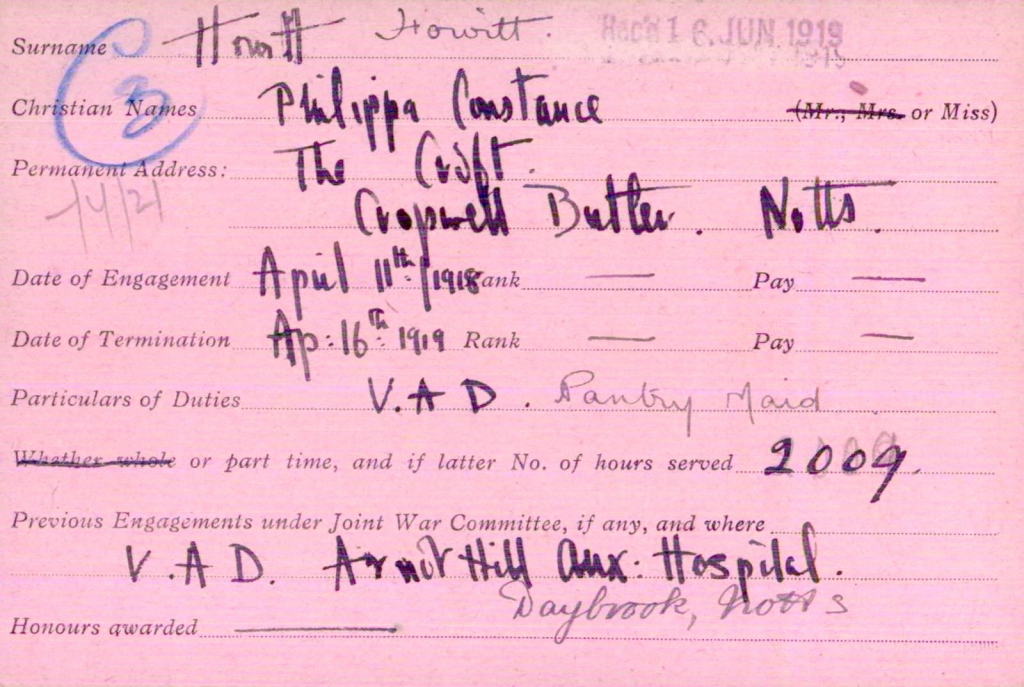 Surname Howitt Howitt. Rec'd 16 JUN 1919
3
Christian Names Philippa Constance (Mr., Mrs. or Miss)
Permanent Address: The Croft.
14/21
Cropwell Butler. Notts.
Date of Engagement April 11th/1918 Rank — Pay —
Date of Termination Ap: 16th 1919 Rank — Pay —
Particulars of Duties V.A.D. Pantry Maid
Whether whole or part time, and if latter No. of hours served 2009.
Previous Engagements under Joint War Committee, if any, and where
V.A.D. Arnot Hill Aux: Hospital.
Daybrook, Notts
Honours awarded —